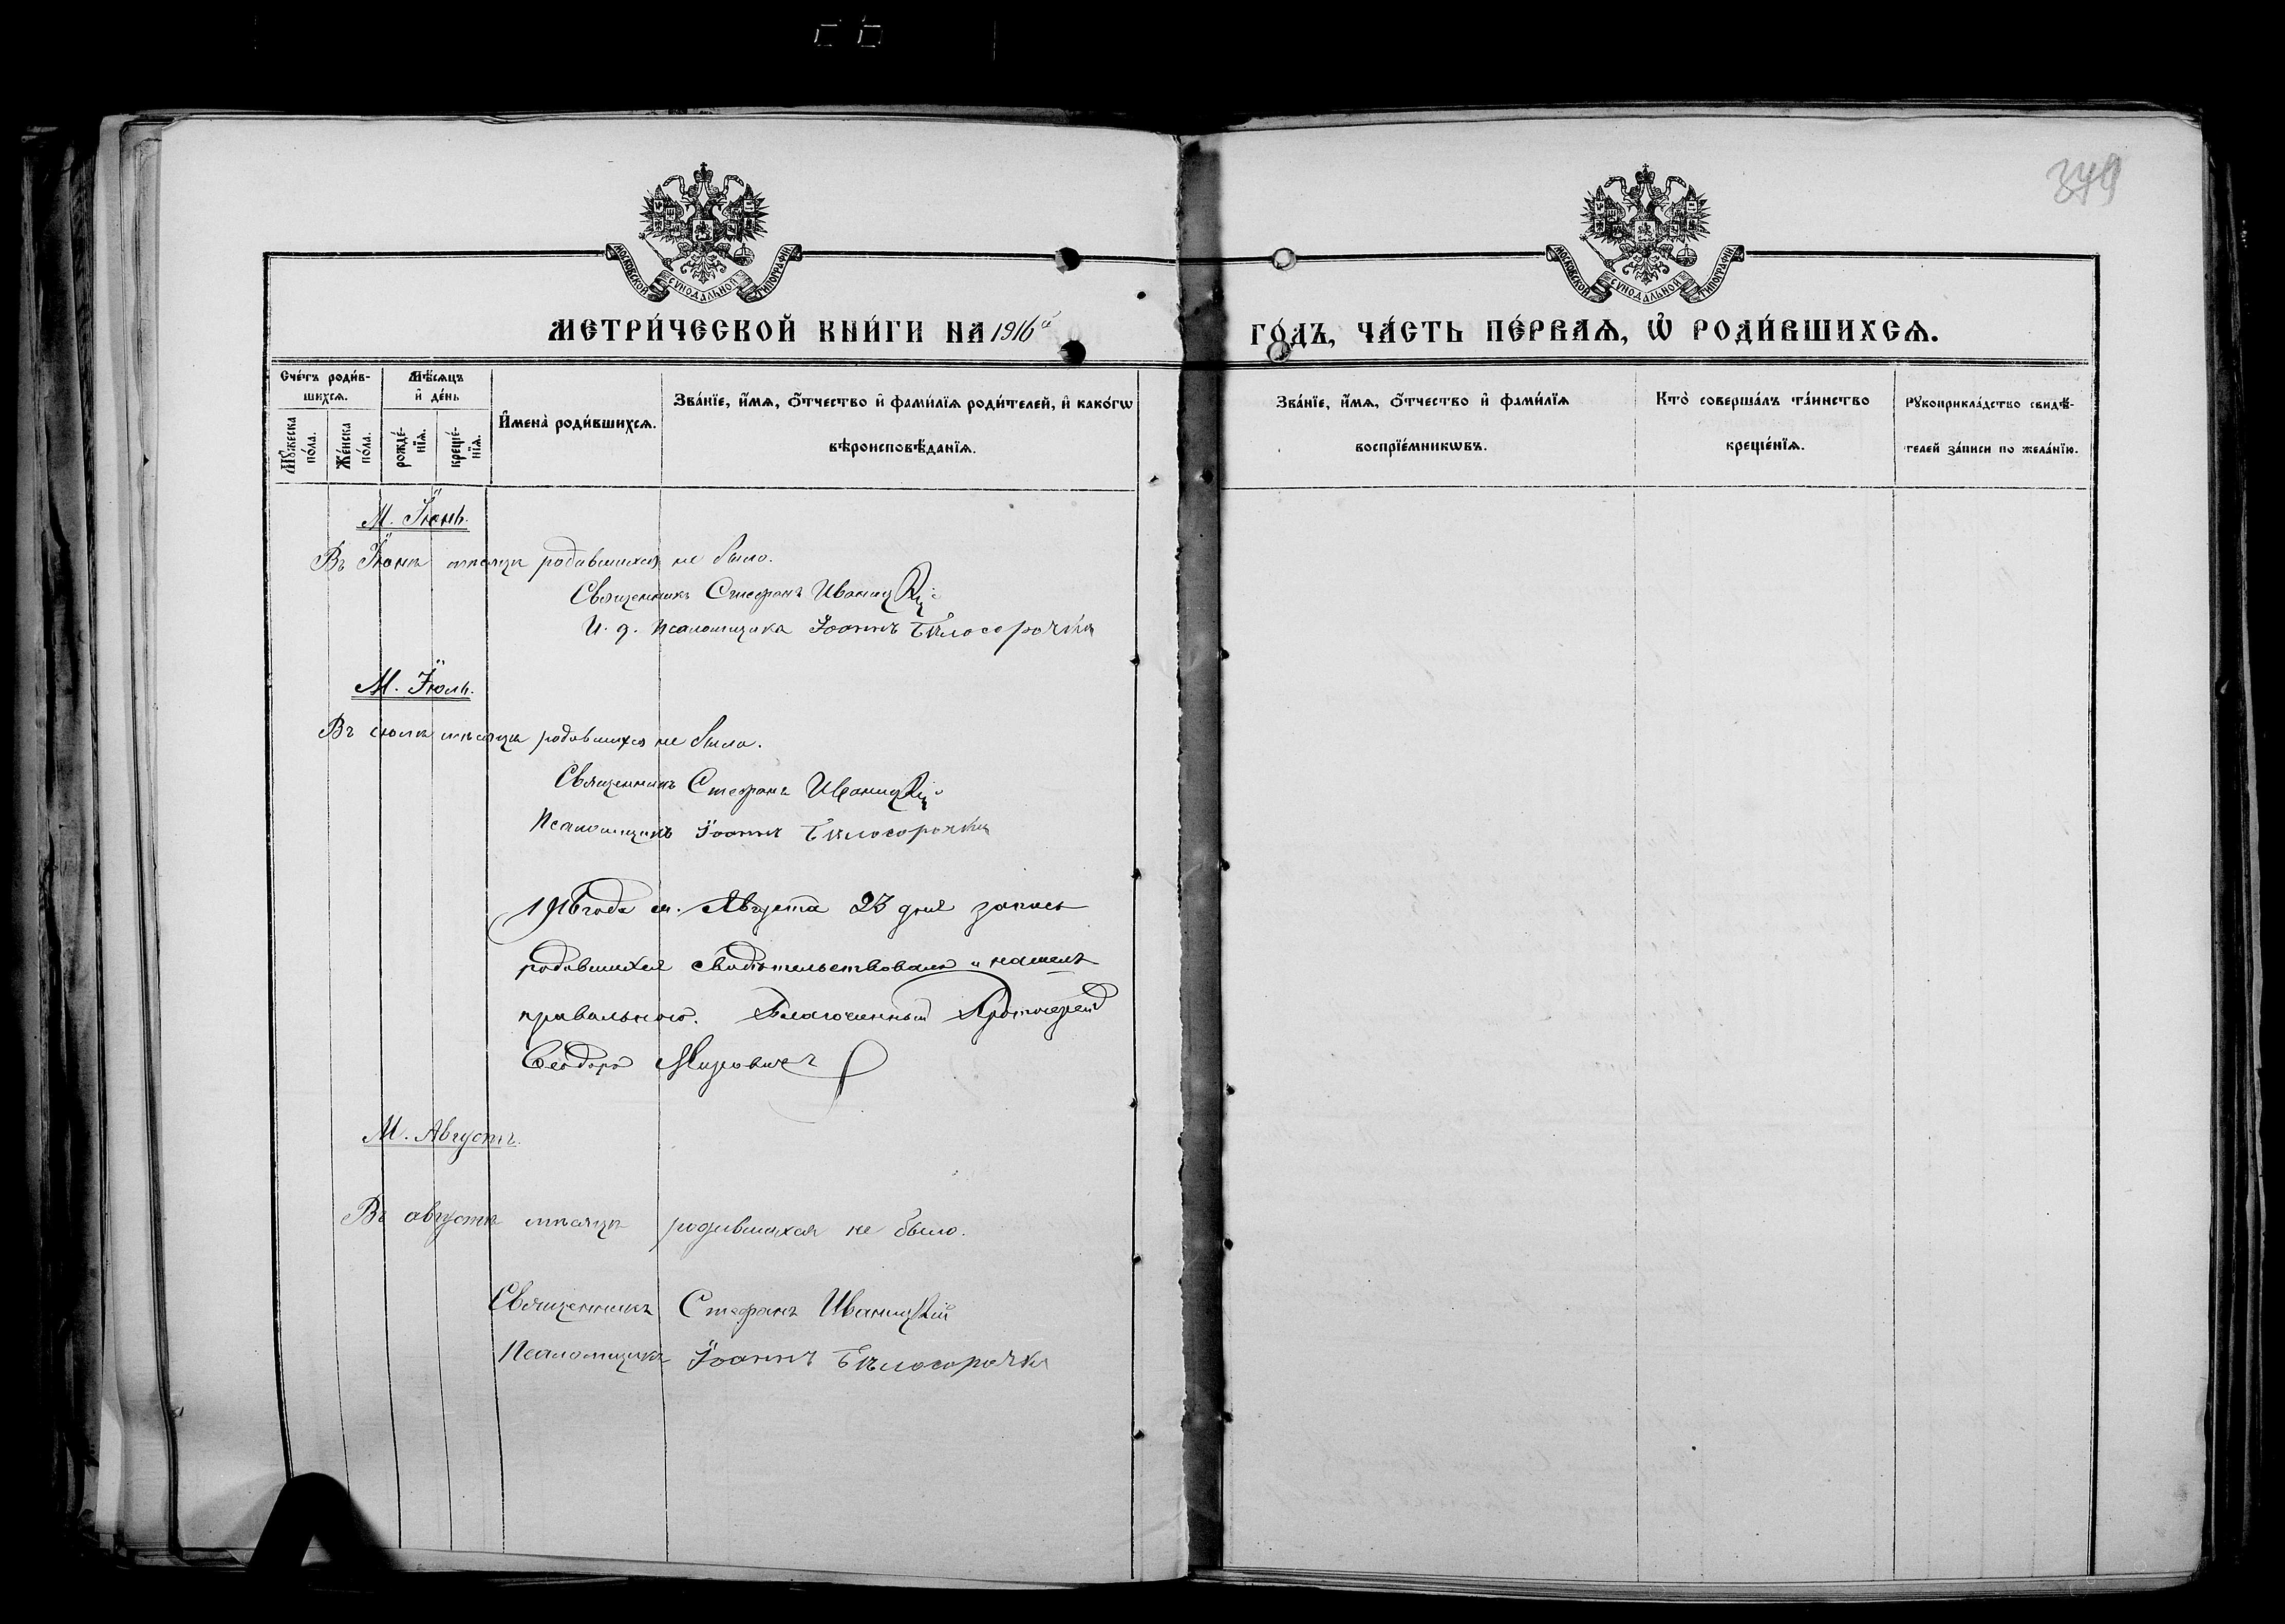 349
МОСКОВСКОЙ СУНОДАЛЬНОЙ ТИПОГРАФІИ
МОСКОВСКОЙ СУНОДАЛЬНОЙ ТИПОГРАФІИ
МЕТРИ́ЧЕСКОЙ КНИ́ГИ НА 1916й
ГО́ДЪ, ЧА́СТЬ ПЕ́РВАѦ, Ѿ РОДИ́ВШИХСѦ.
Сче́тъ роди́в-
шихсѧ.
Мꙋ́жеска по́ла.
Же́нска по́ла.
Мѣ́сѧцъ
и҆ де́нь
рожде́-
нїѧ.
креще́-
нїѧ.
И҆мена̀ роди́вшихсѧ.
Зва́нїе, и҆́мѧ, ѻ҆́тчество и҆ фами́лїѧ роди́телей, и҆ како́гѡ
вѣроисповѣ́данїѧ.
Зва́нїе, и҆́мѧ, ѻ҆́тчество и҆ фами́лїѧ
воспрїе́мникѡвъ.
Кто̀ соверша́лъ та́инство
креще́нїѧ.
Рꙋкоприкла́дство свидѣ́-
телей за́писи по жела́нїю.
М. Іюнь.
Въ Іюнѣ мѣсяцѣ родившихся не было.
Священникъ Стефанъ Иваницкій
И. д. псаломщика Іоаннъ Бѣлосорочка
М. Іюль.
Въ іюлѣ мѣсяцѣ родившихся не было.
Священникъ Стефанъ Иваницкій
Псаломщикъ Іоаннъ Бѣлосорочка
1916 года м. Августа 23 дня запись
родившихся свидѣтельствовалъ и нашелъ
правильною. Благочинный Протоіерей
Ѳеодоръ
М. Августъ.
Въ августѣ мѣсяцѣ родившихся не было.
Священникъ Стефанъ Иваницкій
Псаломщикъ Іоаннъ Бѣлосорочка